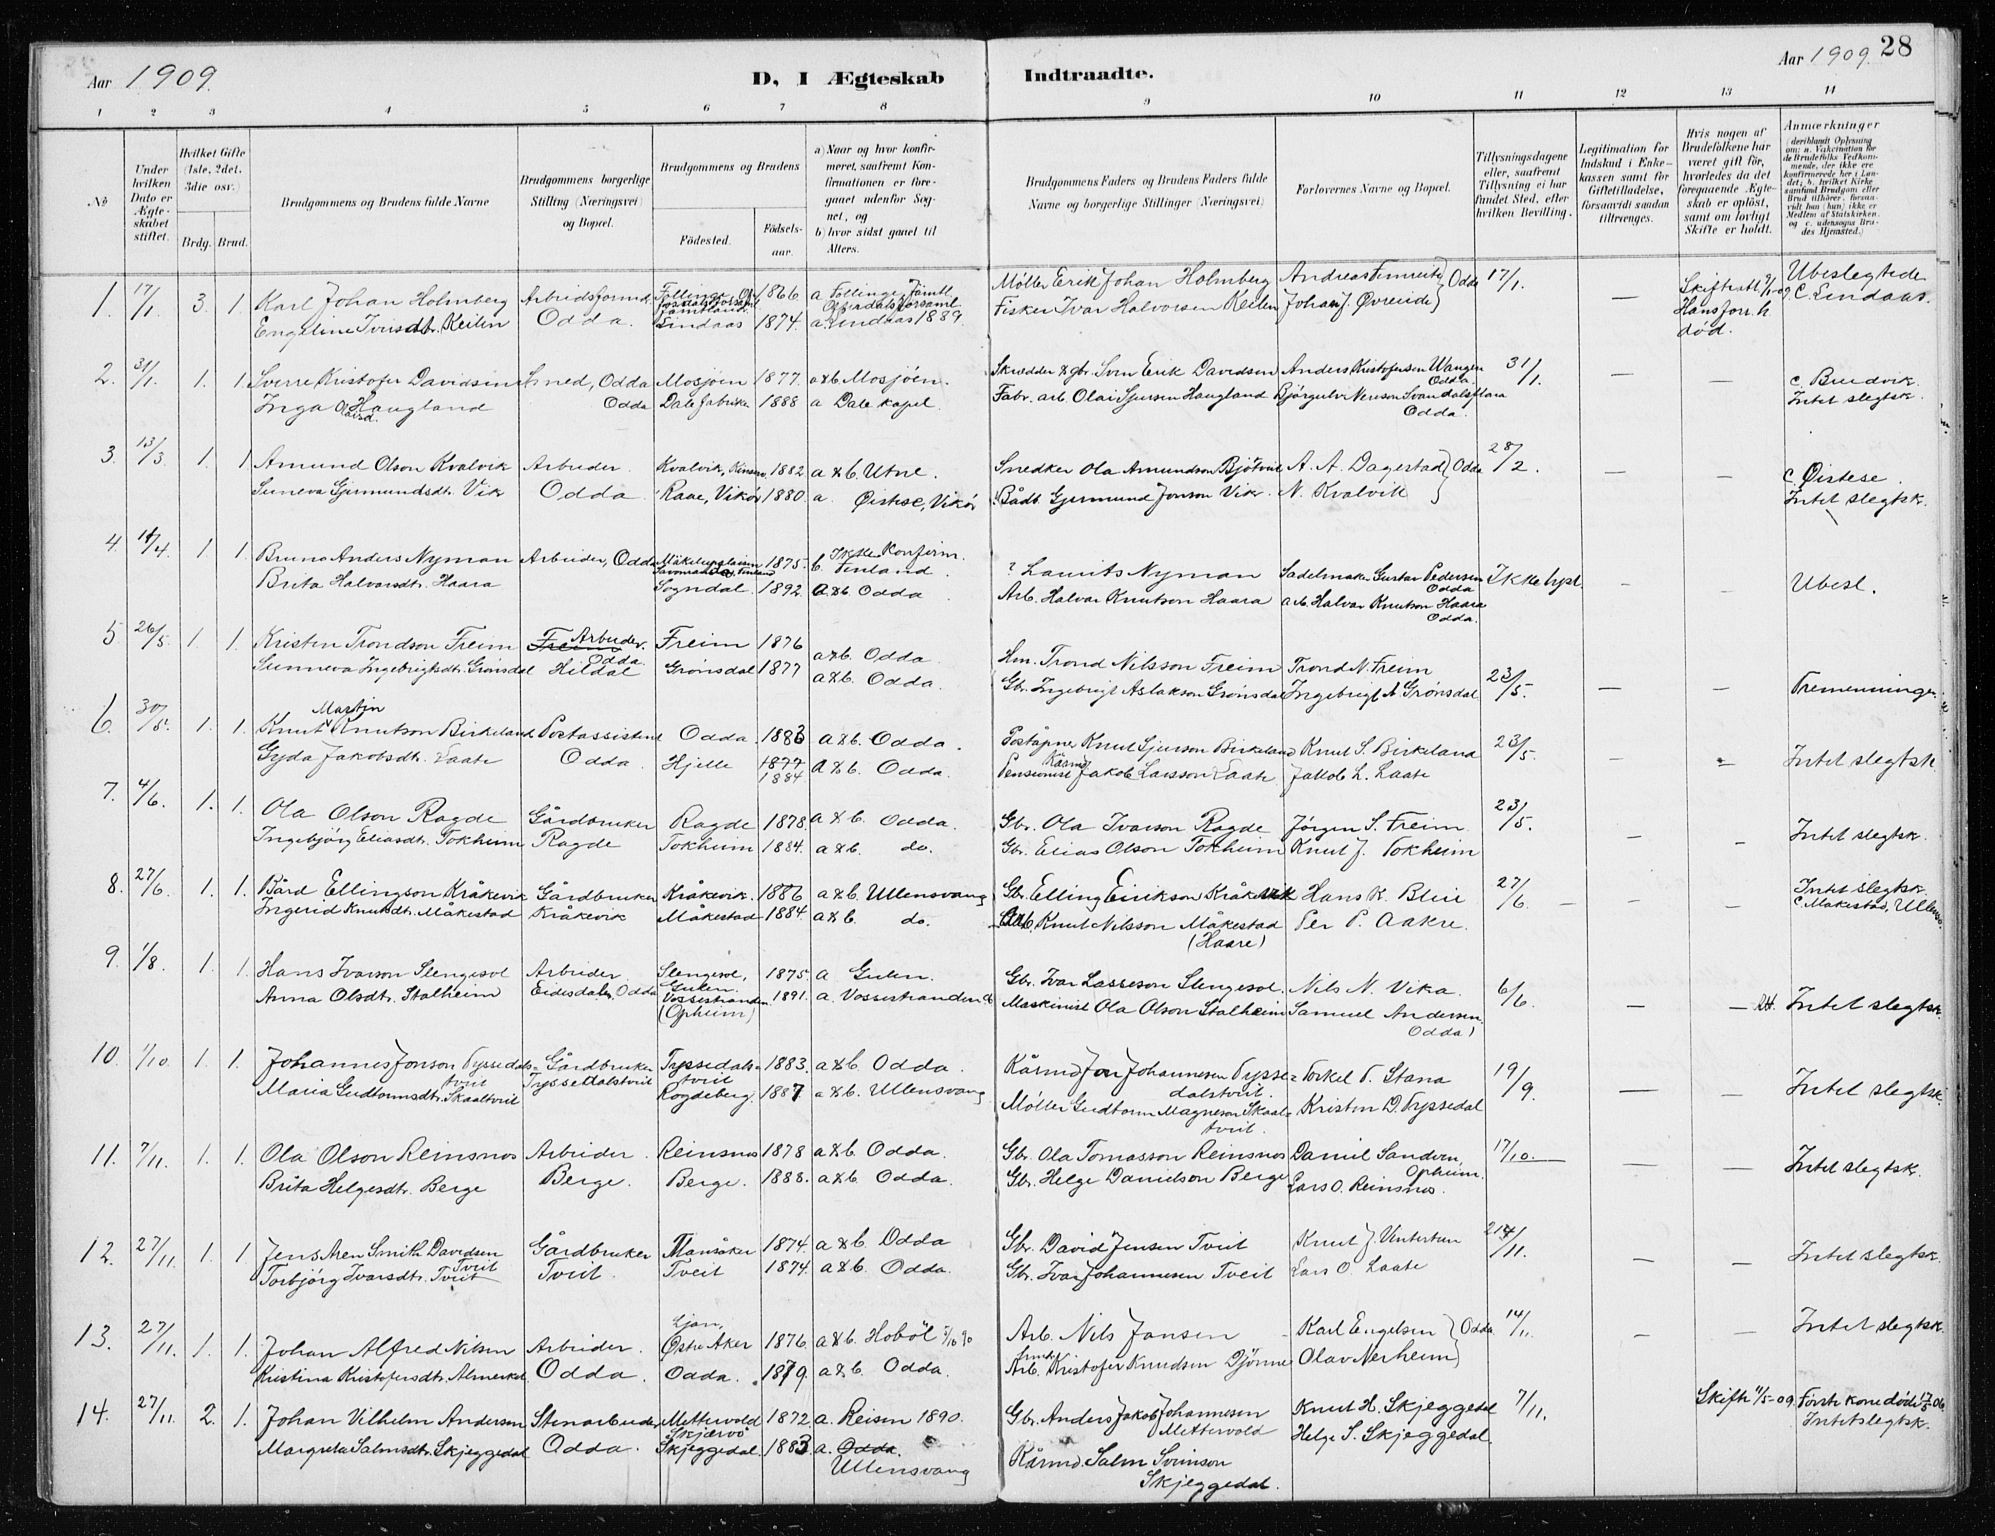 Aar 1909.
D. I Ægteskab Indtraadte.
Aar 1909. 28
1 2 3 4 5 6 7 8 9 10 11 12 13 14
No
Under hvilken Dato er Ægteskabet stiftet.
Hvilket Gifte (1ste, 2det, 3die osv.)
Brdg. Brud.
Brudgommens og Brudens fulde Navne
Brudgommens borgerlige Stilling (Næringsvei) og Bopæl.
Brudgommens og Brudens
Fødested. Fødselsaar.
a) Naar og hvor konfirmeret, saafremt Konfirmationen er foregaaet udenfor Sognet, og
b) hvor sidst gaaet til Alters.
Brudgommens Faders og Brudens Faders fulde Navne og borgerlige Stillinger (Næringsvei)
Forlovernes Navne og Bopæl.
Tillysningsdagene eller, saafremt Tillysning ei har fundet Sted, efter hvilken Bevilling.
Legitimation for Indskud i Enkekassen samt for Giftetilladelse, forsaavidt saadan tiltrænges.
Hvis nogen af Brudefolkene har været gift før, hvorledes da det foregaaende Ægteskab er opløst, samt om lovligt Skifte er holdt.
Anmærkninger (deriblandt Oplysning om: a. Vakcination for de Brudefolks Vedkommende, der ikke ere konfirmerede her i Landet; b. hvilket Kirkesamfund Brudgom eller Brud tilhører, forsaavidt han (hun) ikke er Medlem af Statskirken, og c. udensogns Brudes Hjemsted.)
1. 17/1. 3. 1. Karl Johan Holmberg Arbeidsformd. 1866 Møller Erik Johan Holmberg Andreas Fimreite Odda 17/1. — Ubeslegtede
Engeline Iversdt. Keilen Odda. Lindaas 1874. a. Lindaas 1889. Fisker Ivar Halvorsen Keilen Johan J. Øvreeide Hans forr. h. død. C. Lindaas.
2. 31/1. 1. 1. Sverre Kristofer Davidsen Smed, Odda Mosjøen 1877. a&b Mosjöen. Skrædder & gbr. Sven Erik Davidsen Anders Kristofersen Wangen Odda. 31/1. — — c. Bredvik.
Inga Olavsd. Haugland Odda Dale fabriker 1888 a Dale kapel. Fabr. arb. Olai Sjursen Haugland Bjørgulv Nereson Svandalsflona Odda. Intet slegtsk.
3. 13/3. 1. 1. Amund Olson Kvalvik Arbeider. Kvalvik, Kinserv. 1882 a&b. Utne. Snedker Ola Amundson Bjötveit A. A. Dagestad Odda 28/2. — — C. Øistese.
Suneva Gjermundsdt. Vik Odda Raae, Vikør 1880. a. Øistese, Vikør Bådb. Gjermund Jonson Vik. N. Kvalvik Intet slegtsk.
4. 11/4. 1. 1. Bruno Anders Nyman Arbeider, Odda 1875. Ikke Konfirm. b. Finland. ? Laurits Nyman Sadelmaker Gustav Pedersen Odda Ikke lyst — Ubesl.
Brita Halvarsdt. Haara Sogndal. 1892. a&b. Odda Arb. Halvar Knutson Haara arb. Halvar Knutson Haara Odda.
5. 26/5. 1. 1. Kristen Trondson Freim Arbeider. Odda. Freim 1876 a&b. Odda Hm. Trond Nilsson Freim Trond N. Freim 23/5. — — Tremenninger
Sunneva Ingebrigtsdt. Grønsdal Hildal Grønsdal 1877 a&b. Odda. Gbr. Ingebrigt Aslakson Grønsdal Ingebrigt A Grønsdal
6. 30/5. 1. 1. Knut Martin Knutson Birkeland Postassistent Odda. 1883 a&b. Odda. Poståpner Knut Sjurson Birkeland Knut S. Birkeland 23/5. — — Intet slegtsk.
Gyda Jakobsdt. Laate Odda. Hjelle 1877 1884 a&b. Odda. Pensionist Kårmd Jakob Larsson Laate Jakob L. Laate
7. 4/6. 1. 1. Ola Olson Ragde Gårdbruker Ragde 1878. a&b. Odda. Gbr. Ola Ivarson Ragde Jørgen S. Freim 23/5. — — Intet slegtsk.
Ingebjörg Eliasdt. Tokheim Ragde Tokheim 1884. a&b. do. Gbr. Elias Olson Tokheim Knut J. Tokheim
8. 27/6. 1. 1. Bård Ellingson Kråkevik Gårdbruker Kråkevik. 1886 a&b. Ullensvang Gbr. Elling Eirikson Kråkevik Hans K. Bleie 27/6. — — — Intet slegtsk.
Ingerid Knutsdt. Måkestad Kråkevik Måkestad 1884. a&b. do. Arb. Knut Nilsson Måkestad (Haare) Per P. Aakre. C. Måkestad, Ullensv.
9. 1/8. 1. 1. Hans Ivarson Slengesol Arbeider. Slengesol, Gulen. 1875 a Gulen. Gbr. Ivar Lasseson Slengesol. Nils N. Vika. 6/6. — — Intet slegtsk.
Anna Olsdt. Stalheim Eidesdalen, Odda Vossestranden (Opheim) 1891. a. Vossestranden Maskinist Ola Olson Stalheim Samuel Andersen. Odda)
10. 1/10. 1. 1. Johannes Jonson Tyssedalstveit Gårdbruker Tyssedalstveit 1883. a&b. Odda. Kårmd Jon Johannesen Tyssedalstveit. Torkel T. Stana 19/9. — — Intet slegtsk.
Maria Gudtormsdt. Skaaltveit Tyssedalstveit Rogdeberg. 1887 a&b. Ullensvang Møller Gudtorm Magneson Skaaltveit. Kristen D. Tyssedal
11. 7/11. 1. 1. Ola Olson Reinsnos Arbeider. Reinsnos 1878 a&b. Odda. Gbr. Ola Tomasson Reinsnos Daniel Sandven Opheim. 17/10. — — Intet slegtsk.
Brita Helgesdt. Berge Berge. Berge. 1888. a&b. Odda. Gbr. Helge Danielson Berge Lars O. Reinsnos.
12. 27/11. 1. 1 Jens Aren Smith Davidsen Tveit Gårdbruker Mansåker 1874. a&b. Odda Gbr. David Jensen Tveit Knut J. Vintertun /11. — — Intet slegtsk.
Torbjörg Ivarsdt. Tveit Tveit. Tveit 1874. a&b. Odda. Gbr. Ivar Johannesen Tveit Lars O. Laate
13. 27/11. 1. 1. Johan Alfred Nilsen Arbeider. Ljan, Østre Aker 1876. a&b. Hoböl Arb. Nils Jansen Karl Engelsen Odda 14/11. — — Intet slegtsk.
Kristina Kristofersdt. Almerket Odda. Odda. 1879. a&b. Odda. Arb. Kristofer Knudsen Djönne Olav Nerheim
14. 27/11. 2. 1. Johan Vilhelm Andersen Stenarbeider Mettevold Skjærvö 1872 a. Reisen 1890. Gbr. Anders Jakob Johannesen Mettevold Knut H. Skjeggedal 7/11. Skifte 11/5-09. Første kone død
Margreta Salmsdt. Skjeggedal Odda. Skjeggedal. 1883. a. Odda. Ullensvang Kårmd. Salm Sveinson Skjeggedal. Helge S. Skjeggedal. Intet slegtsk.